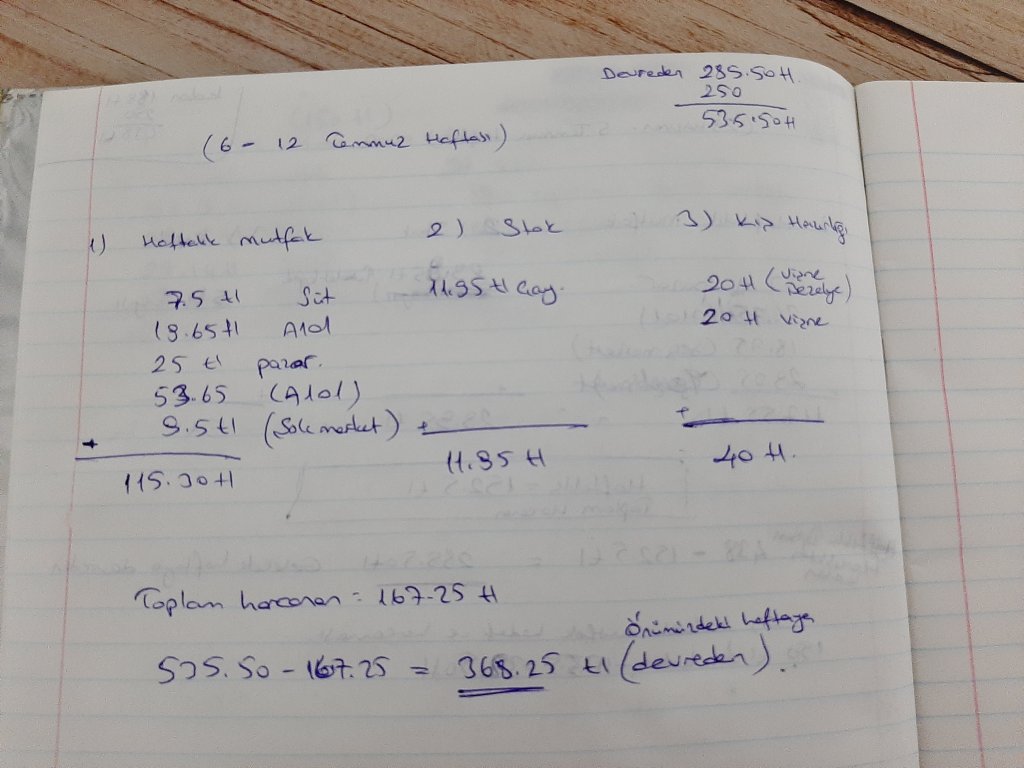 Devreden 285.50 tl
250
535.50 tl
(6 - 12 Temmuz Haftası)
1) Haftalık mutfak
7.5 tl Süt
19.65 tl A101
25 tl pazar.
53.65 (A101)
9.5 tl (Şok market)
+
115.30 tl
2) Stok
11.95 tl Çay.
+
11.95 tl
3) Kış Hazırlığı
20 tl (Vişne Bezelye)
20 tl Vişne
+
40 tl.
Toplam harcanan = 167.25 tl
Önümüzdeki haftaya
535.50 - 167.25 = 368.25 tl (devreden).